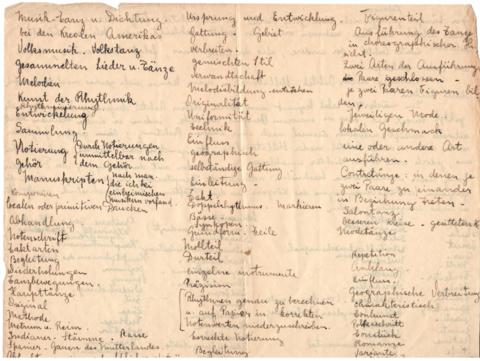 Musik-Tanz u. Dichtung
bei den Kreolen Amerikas
Volksmusik. Volkstanz
gesammelten Lieder u. Tänze
Melodien
Kunst der Rhythmik
Entwickelung
Sammlung
Notierung
Durch Notierungen
unmittelbar nach
Gehör
dem Gehör
Manuskripten
nach man.
die ich bei
einheimischen
Musikern vorfand
lokalen oder primitiven Drucken
Abhandlung
Notenschrift
Taktarten
Begleitung
Wiederholungen
Tanzbewegungen
Haupttänze
Original
Methode
Metrum u. Reim
Indianer-Stämme. Rasse
Ursprung und Entwicklung.
Gattung - Gebiet
verbreiten
gemischten Stil
Verwandtschaft
Melodiebildung entstehen
Originalität
Uniformität
Technik
Einfluss
geographisch
selbständige Gattung
Einleitung
Takt
Doppelrhythmus markieren
Bässe
Synkopen
Grundform. Teile
Mollteil
Durteil
einzelne Instrumente
Präzision
Rhythmen genau zu berechnen
u. auf Papier in korrekten
Notenwerten niederzuschreiben.
korrekte Notierung
Begleitung
Figurenteil
Ausführung des Tanzes
in choreographischer
Zwei Arten der Ausführung
Paare geschlossen
je zwei Paaren Figuren bil
den
jeweiligen Mode
lokalen Geschmack
eine oder andere Art
ausführen.
Contretänze - in denen je
zwei Paare zu einander
in Beziehung treten.
Salontanz
Modetänze
Repetition
Anklang
Einfluss
Geographische Verbreitung
Charakteristisch
Romanze
Variante